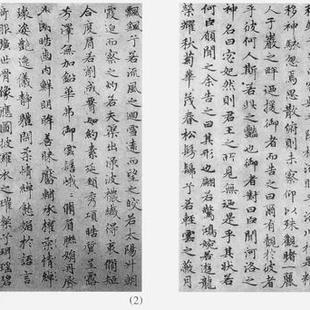 移神駭忽焉思散俯則未察仰以殊觀睹一麗
人于巖之畔迺援御者而告之曰爾有覿於彼者
乎彼何人斯若此之豔也御者對曰臣聞河洛之
神名曰宓妃然則君王之所見無迺是乎其狀若
何臣願聞之余告之曰其形也翩若驚鴻婉若遊龍
榮耀秋菊華茂春松髣髴兮若輕雲之蔽月
飄飖兮若流風之迴雪遠而望之皎若太陽升朝
霞迫而察之灼若芙蕖出淥波襛纖得衷脩短
合度肩若削成腰如約素延頸秀項皓質呈露
芳澤無加鉛華弗御雲髻峨峨脩眉聯娟丹脣
外朗皓齒內鮮明眸善睞靨輔承權
瓌姿豔逸儀靜體閑柔情綽態媚於語言
奇服曠世骨像應圖披羅衣之璀璨兮珥瑤碧
(2)